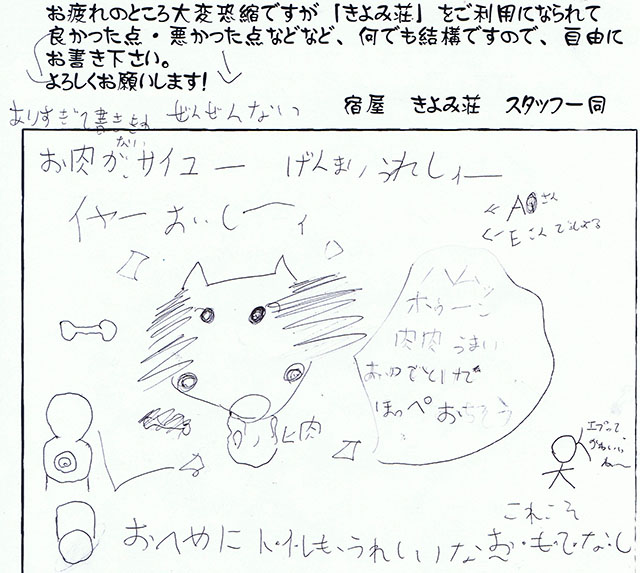 お疲れのところ大変恐縮ですが「きよみ荘」をご利用になられて
良かった点・悪かった点などなど、何でも結構ですので、自由に
お書き下さい。
よろしくお願いします!
宿屋 きよみ荘 スタッフ一同
ありすぎて書ききれない
ぜんぜんない
お肉がサイコー げんまいうれしィー
イヤーおいしーィ
Eさん
ハムッ
ホゥーン
肉肉うまい
おロでとけて
ほっぺおちそう
肉
エプって
かわいい
ね〜
おへやに トイレもうれしいな
これこそ
お・も・て・な・し